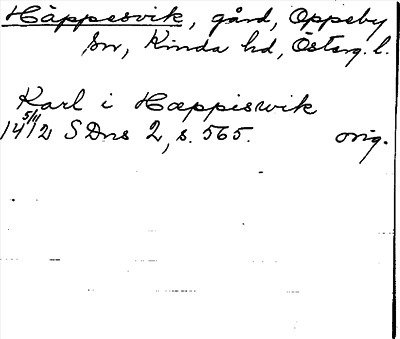 Häppesvik, gård, Oppeby
sn, Kinda hd, Österg. l.
Karl i Hæppiswik
14 5/11 12 SDns 2, s. 565. orig.